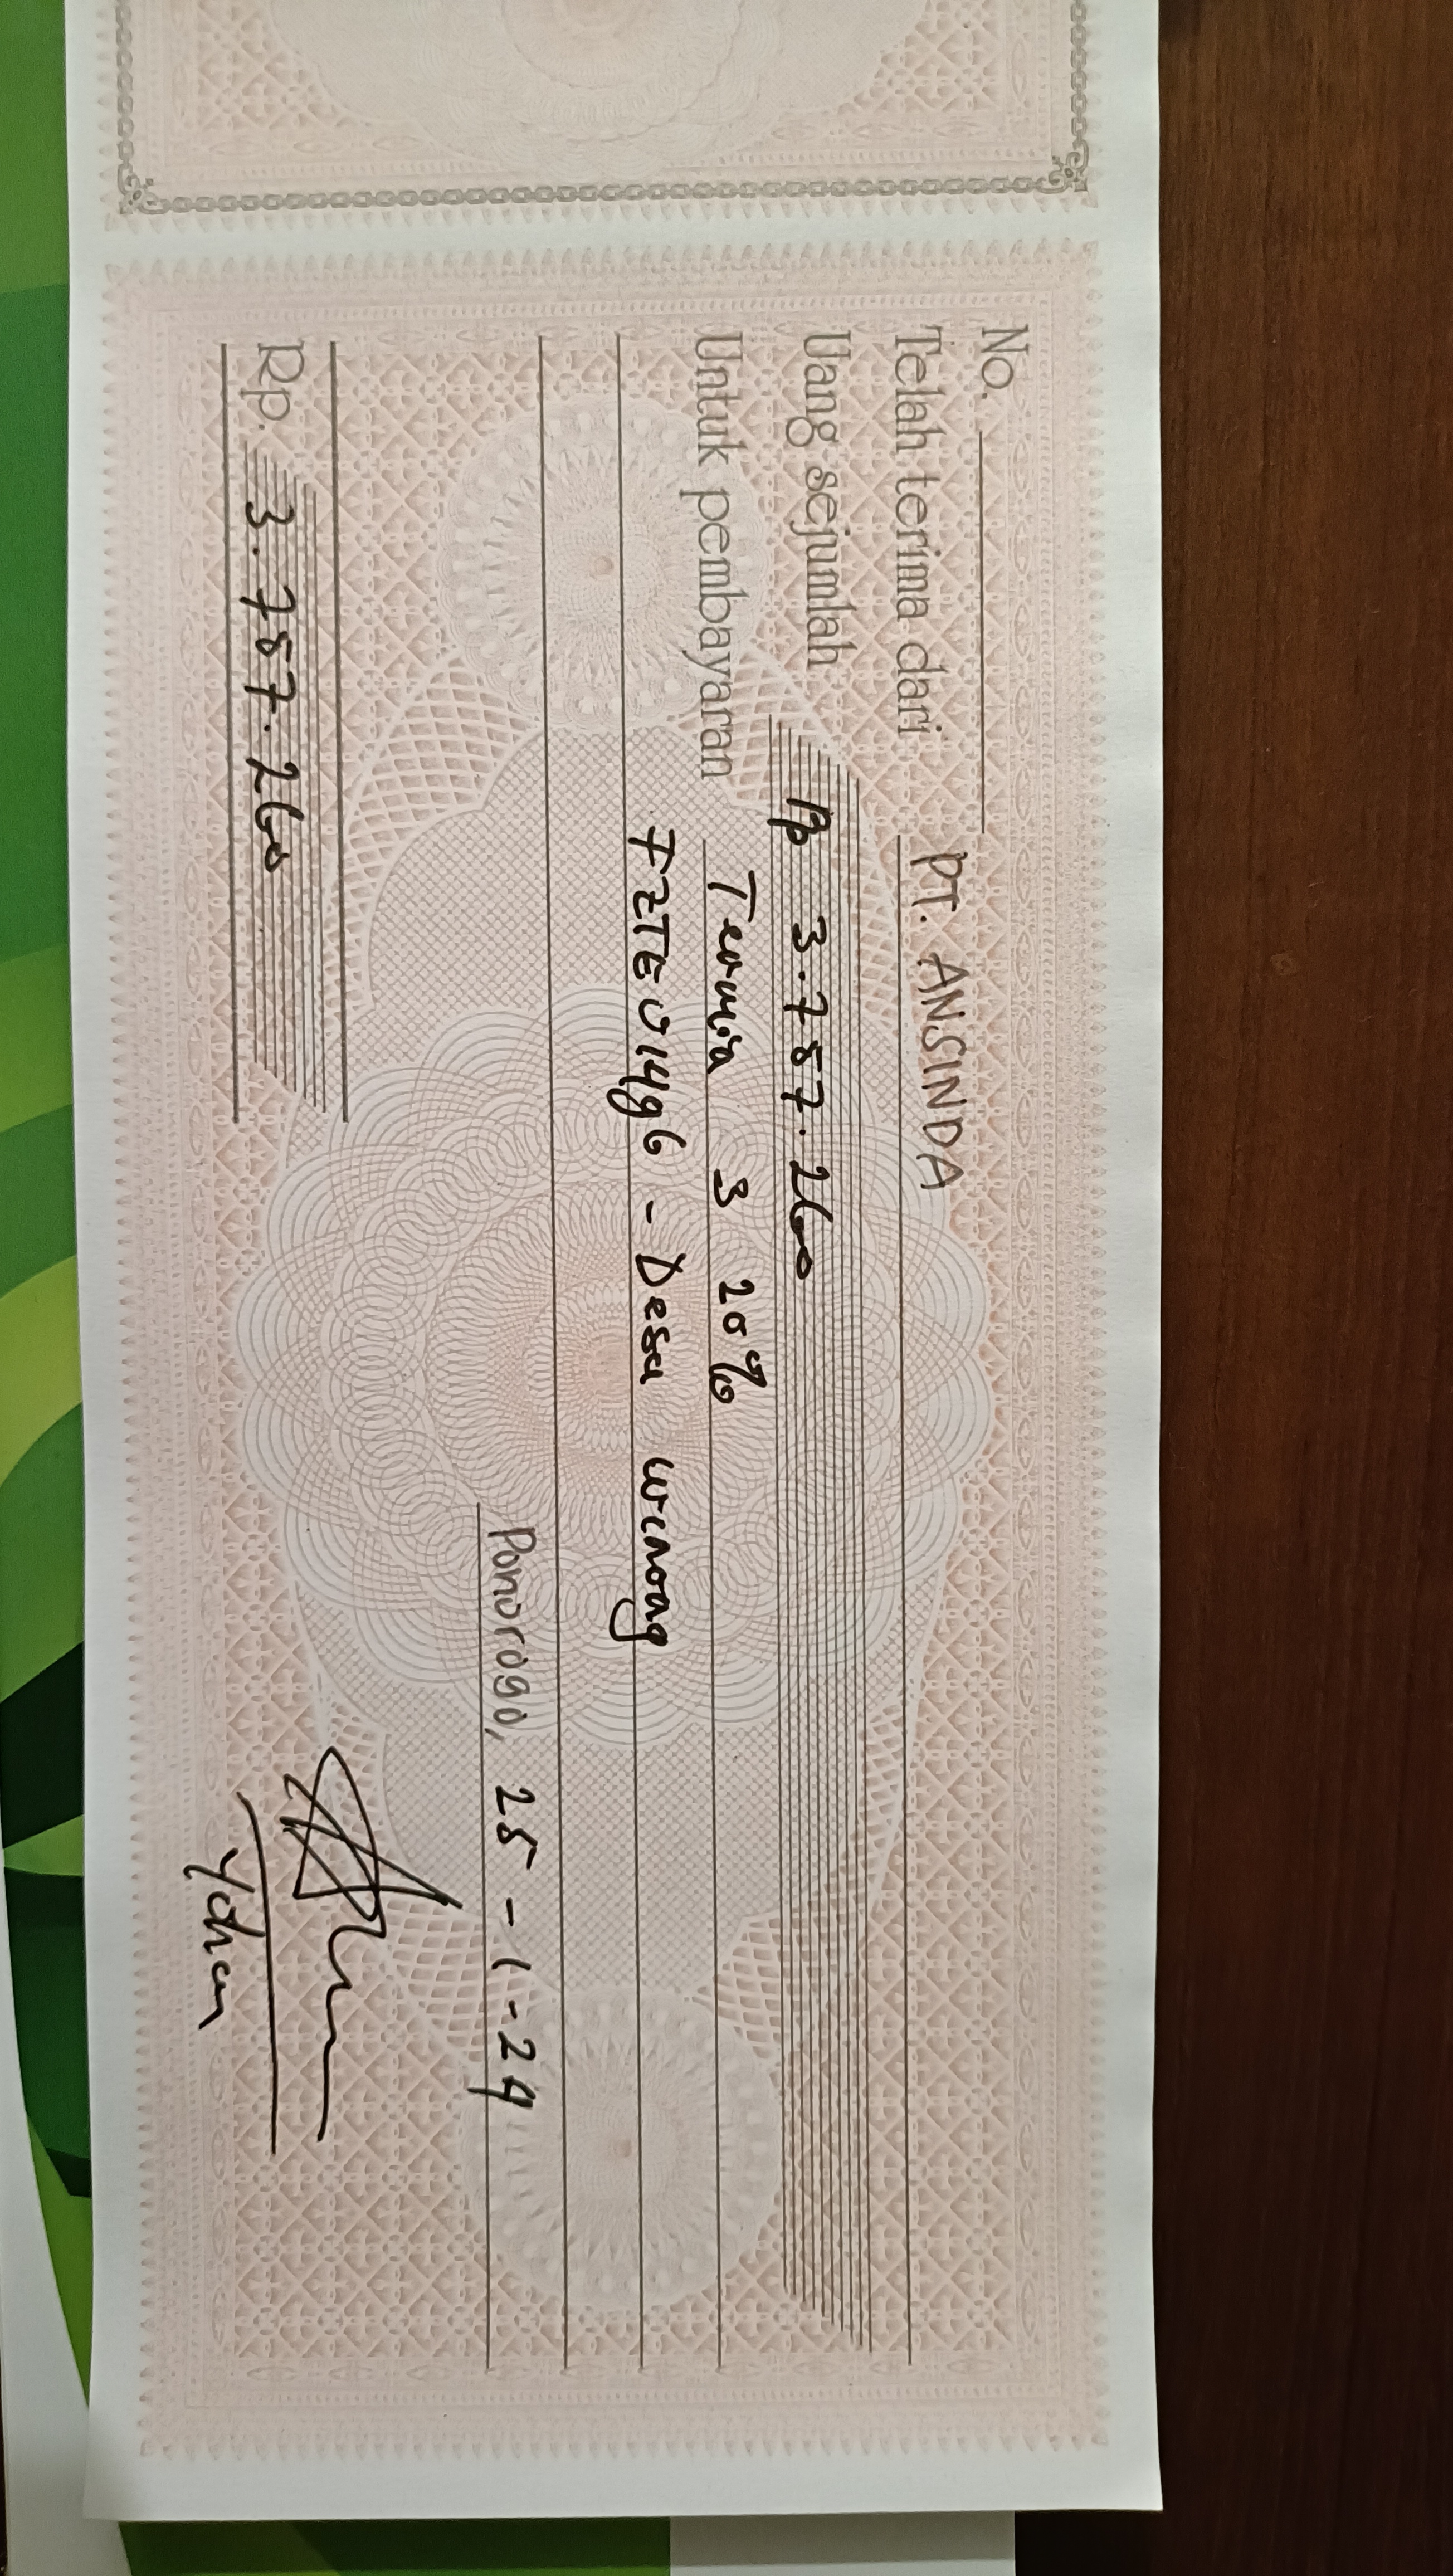 No.
Telah terima dari PT. ANSINDA
Uang sejumlah Rp 3.757.260
Untuk pembayaran Termin 3 20%
FZTE01496 - Desa Winong
Ponorogo, 25 - 1 - 24
Rp. 3.757.260
Yohan